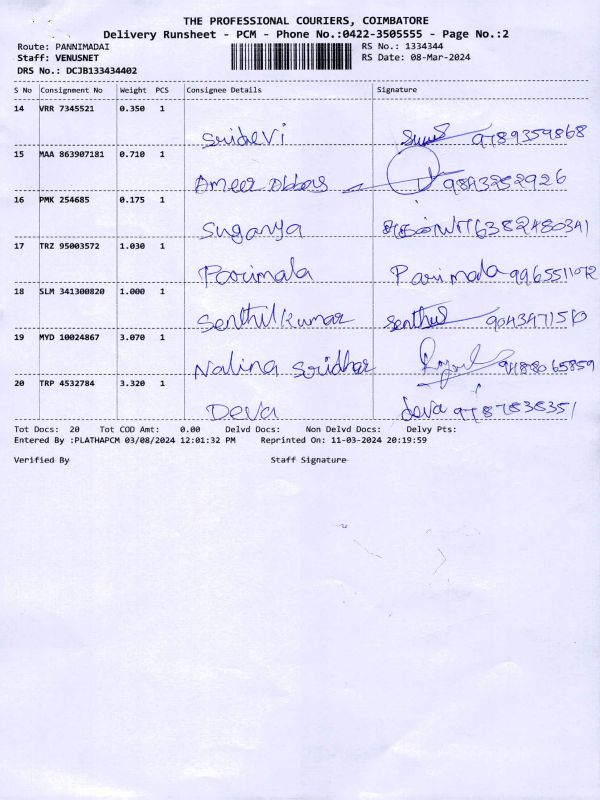 THE PROFESSIONAL COURIERS, COIMBATORE
Delivery Runsheet - PCM - Phone No.:0422-3505555 - Page No.:2
Route: PANNIMADAI RS No.: 1334344
Staff: VENUSNET RS Date: 08-Mar-2024
DRS No.: DCJB133434402
S No Consignment No Weight PCS Consignee Details Signature
14 VRR 7345521 0.350 1
Sridevi 9789359868
15 MAA 863907181 0.710 1
Ameer Abbas 9843252926
16 PMK 254685 0.175 1
Suganya 6382480341
17 TRZ 95003572 1.030 1
Parimala Parimala 9965511072
18 SLM 341300820 1.000 1
Senthil kumar Senthil 9043471510
19 MYD 10024867 3.070 1
Nalina Sridhar
20 TRP 4532784 3.320 1
Deva deva 9787538351
Tot Docs: 20 Tot COD Amt: 0.00 Delvd Docs: Non Delvd Docs: Delvy Pts:
Entered By :PLATHAPCM 03/08/2024 12:01:32 PM Reprinted On: 11-03-2024 20:19:59
Verified By Staff Signature